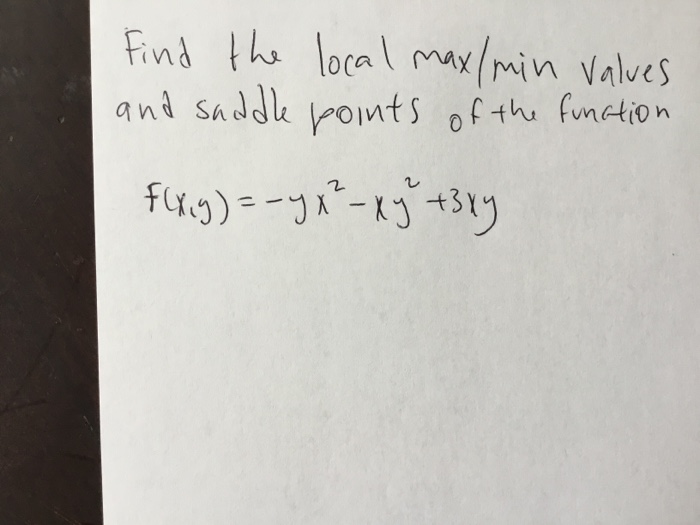 Find the local max/min values
and saddle points of the function
f(x,y) = -yx² - xy² + 3xy